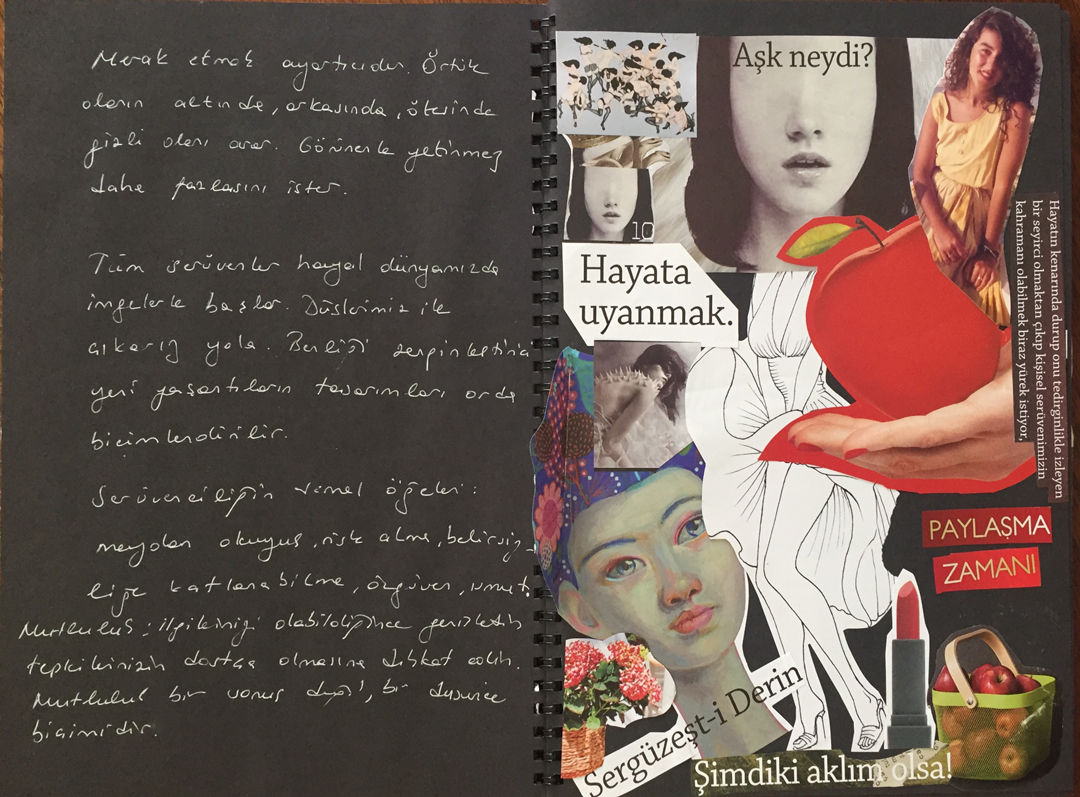 Merak etmek ayartıcıdır. Örtük
olanın altında, arkasında, ötesinde
gizli olanı arar. Görünenle yetinmez
daha fazlasını ister.
Tüm serüvenler hayal dünyamızda
imgelerle başlar. Düşlerimiz ile
çıkarız yola. Benliği zenginleştirici
yeni yaşantıların tasarımları orda
biçimlendirilir.
Serüvenciliğin temel öğeleri:
meydan okuyuş, risk alma, belirsiz-
liğe katlanabilme, özgüven, umut.
Mutluluk; ilginizi olabildiğince genişletin
tepkilerinizin dostça olmasına dikkat edin.
Mutluluk bir varış değil, bir
biçimidir.
Aşk neydi?
10
Hayata
uyanmak.
Hayatın kenarında durup onu tedirginlikle izleyen
bir seyirci olmaktan çıkıp kişisel serüvenimizin
kahramanı olabilmek biraz yürek istiyor,
PAYLAŞMA
ZAMANI
Sergüzeşt-i Derin
Şimdiki aklım olsa!